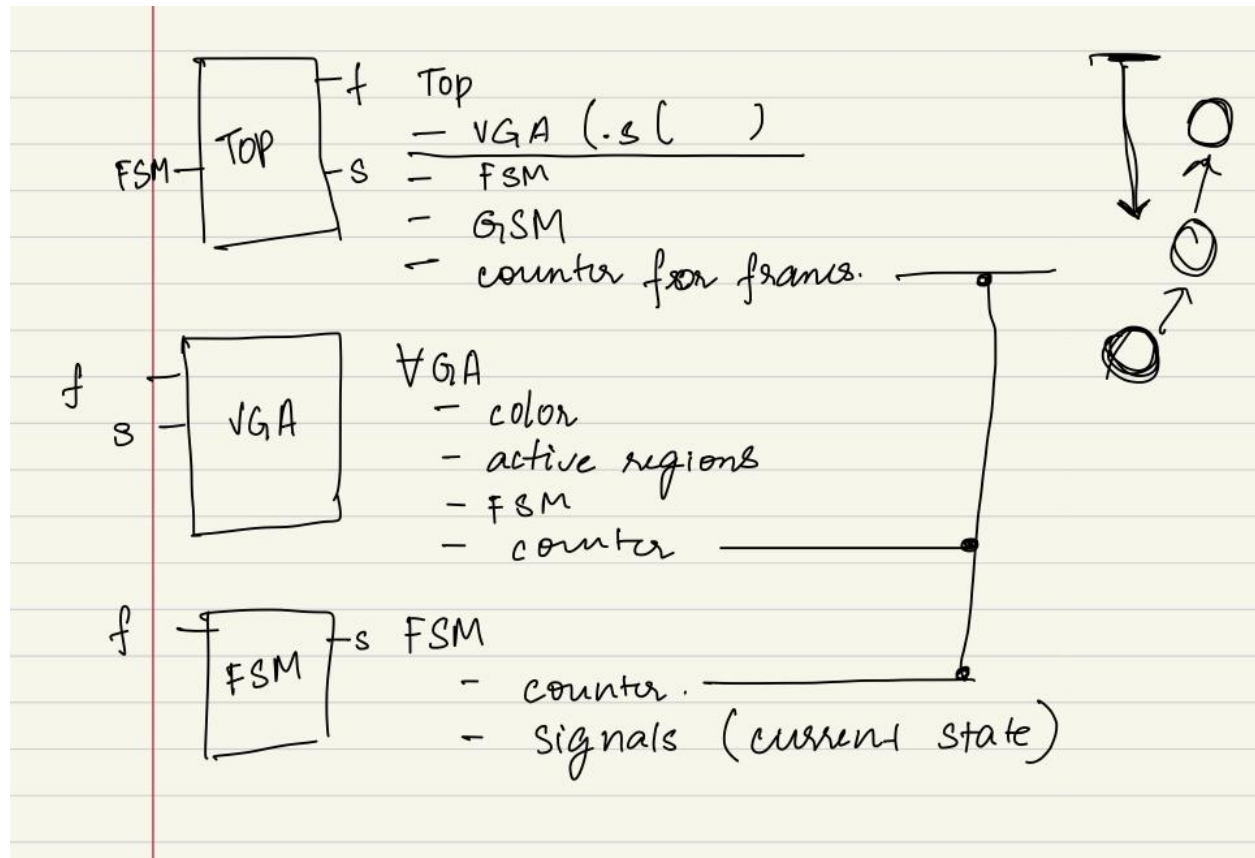 f Top
TOP
— VGA (.s( )
FSM
S
- FSM
- GSM
- counter for frames.
f
VGA
- color
S
VGA
- active regions
- FSM
- counter
f
S
FSM
FSM
- counter.
- signals (current state)